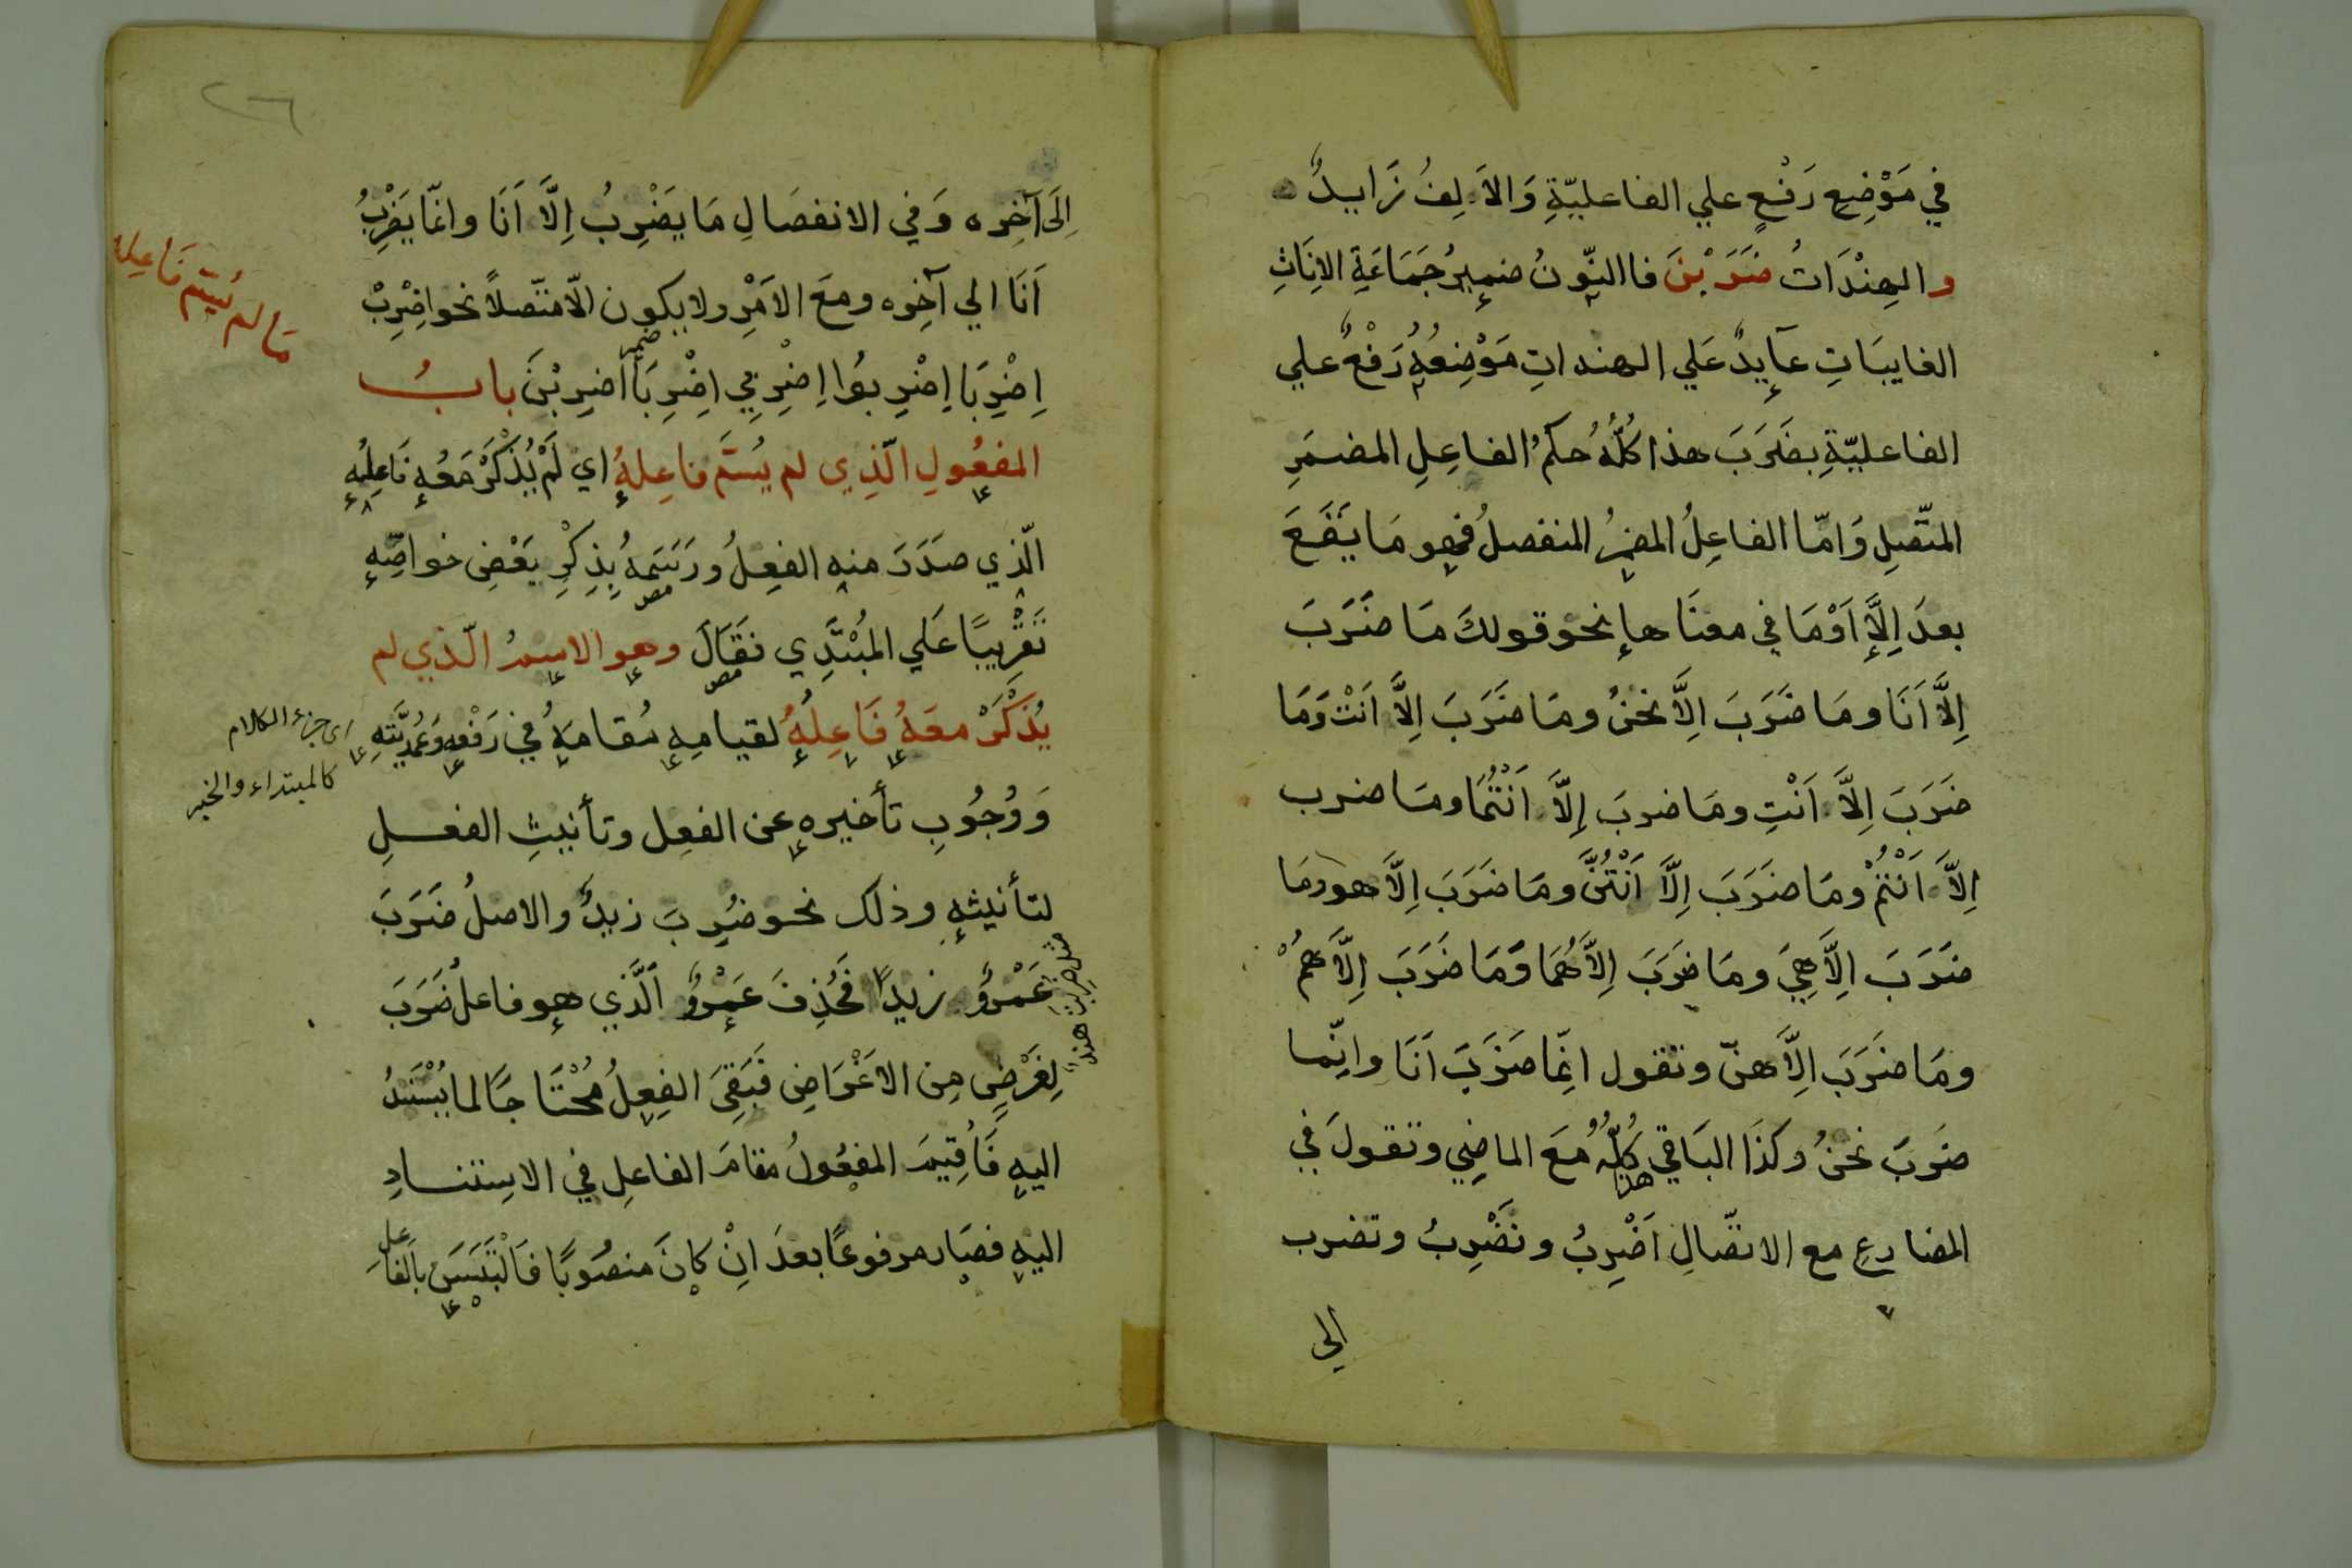 في مَوْضِعِ رَفْعٍ علي الفاعليّةِ وَالاَلِفُ زَايدٌ
والهِنْدَاتُ ضَرَبْنَ فاالنّونُ ضميرُ جَمَاعَةِ الاِنَاثِ
الغايبَاتِ عايدٌ عَلي الهنداتِ مَوْضِعُهُ رَفْعٌ علي
الفاعليّةِ بضَرَبَ هذا كُلُّهُ حكمُ الفاعِلِ المضمَرِ
المتّصِلِ وَامّا الفاعِلُ المضمرُ المنفصلُ فهو مَا يَقَعَ
بعدَ اِلاَّ اَوْمَا في معنَاها نحو قولكَ مَا ضَرَبَ
اِلاَّ اَنَا ومَا ضَرَبَ اِلاَّ نحنُ ومَا ضَرَبَ اِلاَّ اَنْتَ وَمَا
ضَرَبَ اِلاَّ اَنْتِ ومَا ضربَ اِلاَّ اَنْتُمَا ومَا ضرب
اِلاَّ اَنْتُمْ ومَا ضَرَبَ اِلاَّ اَنْتُنَّ ومَا ضَرَبَ اِلاَّ هو ومَا
ضَرَبَ اِلاَّ هِيَ ومَا ضَرَبَ اِلاَّ هُمَا وَمَا ضَرَبَ اِلاَّ هُمْ
ومَا ضَرَبَ اِلاَّ هنّ وتقول انِّمَا ضَرَبَ اَنَا وانِّما
ضَرَبَ نحنُ وكَذَا البَاقي كُلُّهُ مَعَ الماضِي وتقولَ في
هذا
المضارعِ مع الاتّصَالِ اَضْرِبُ ونَضْرِبُ وتضرب
الي
٢٦
اِلَى آخِره وَفي الانفصَالِ مَا يضْرِبُ اِلاَّ اَنَا وانمّا يَضْرِبُ
اَنَا الي آخِره ومعَ الاَمْرِ ولا يكون الاّ متّصلاً نحو اضْرِبْ
ضمير
اِضْرِبَا اِضْرِبوُا اِضْرِبِي اِضْرِبَا اضرِبْنَ بابُ
المفعُولِ الّذِي لم يُسَمَّ فاعِلهُ اي لَمْ يُذْكَرْ مَعُهِ فَاعِلُهِ
الّذي صَدَرَ منهِ الفعِلُ ورَسَمَهُ بِذِكْرِ بَعْضِ خواصِّهِ
مص
تَقْرِيبًا عَلي المُبْتَدِي فقَالَ وهو الاِسمُ الّذي لم
مص
يُذْكَرْ معَهُ فَاعِلُهُ لقيامِهِ مُقامَهُ في رَفْعِهِ وَعُمْدِيَّتِهِ
وَوُجُوبِ تأخيرهِ عن الفعِل وتأنيثِ الفعلِ
لتأنيثهِ وذلك نحو ضُرِبَ زيدٌ والاصلُ ضَرَبَ
عَمْرٌو زيدًا فحُذِفَ عَمْرٌو الَّذي هو فاعلُ ضَرَبَ
لِغَرْضٍ مِن الاَغْرَاضِ فَبَقِيَ الفِعِلُ مُحْتَاجًا لما يُسْنَدُ
اليهِ فَاُقِيمَ المفعُولُ مقامَ الفاعلِ في الاسِنادِ
اليهِ فصَار مرفوعًا بعدَ انْ كانَ منصُوبًا فَالْتَبَسَ بالفَاعل
مَا لم يُسَمّ فَاعِله
اي جزء الكلام
كالمبتداء والخبر
مثل ضُربت هندٌ